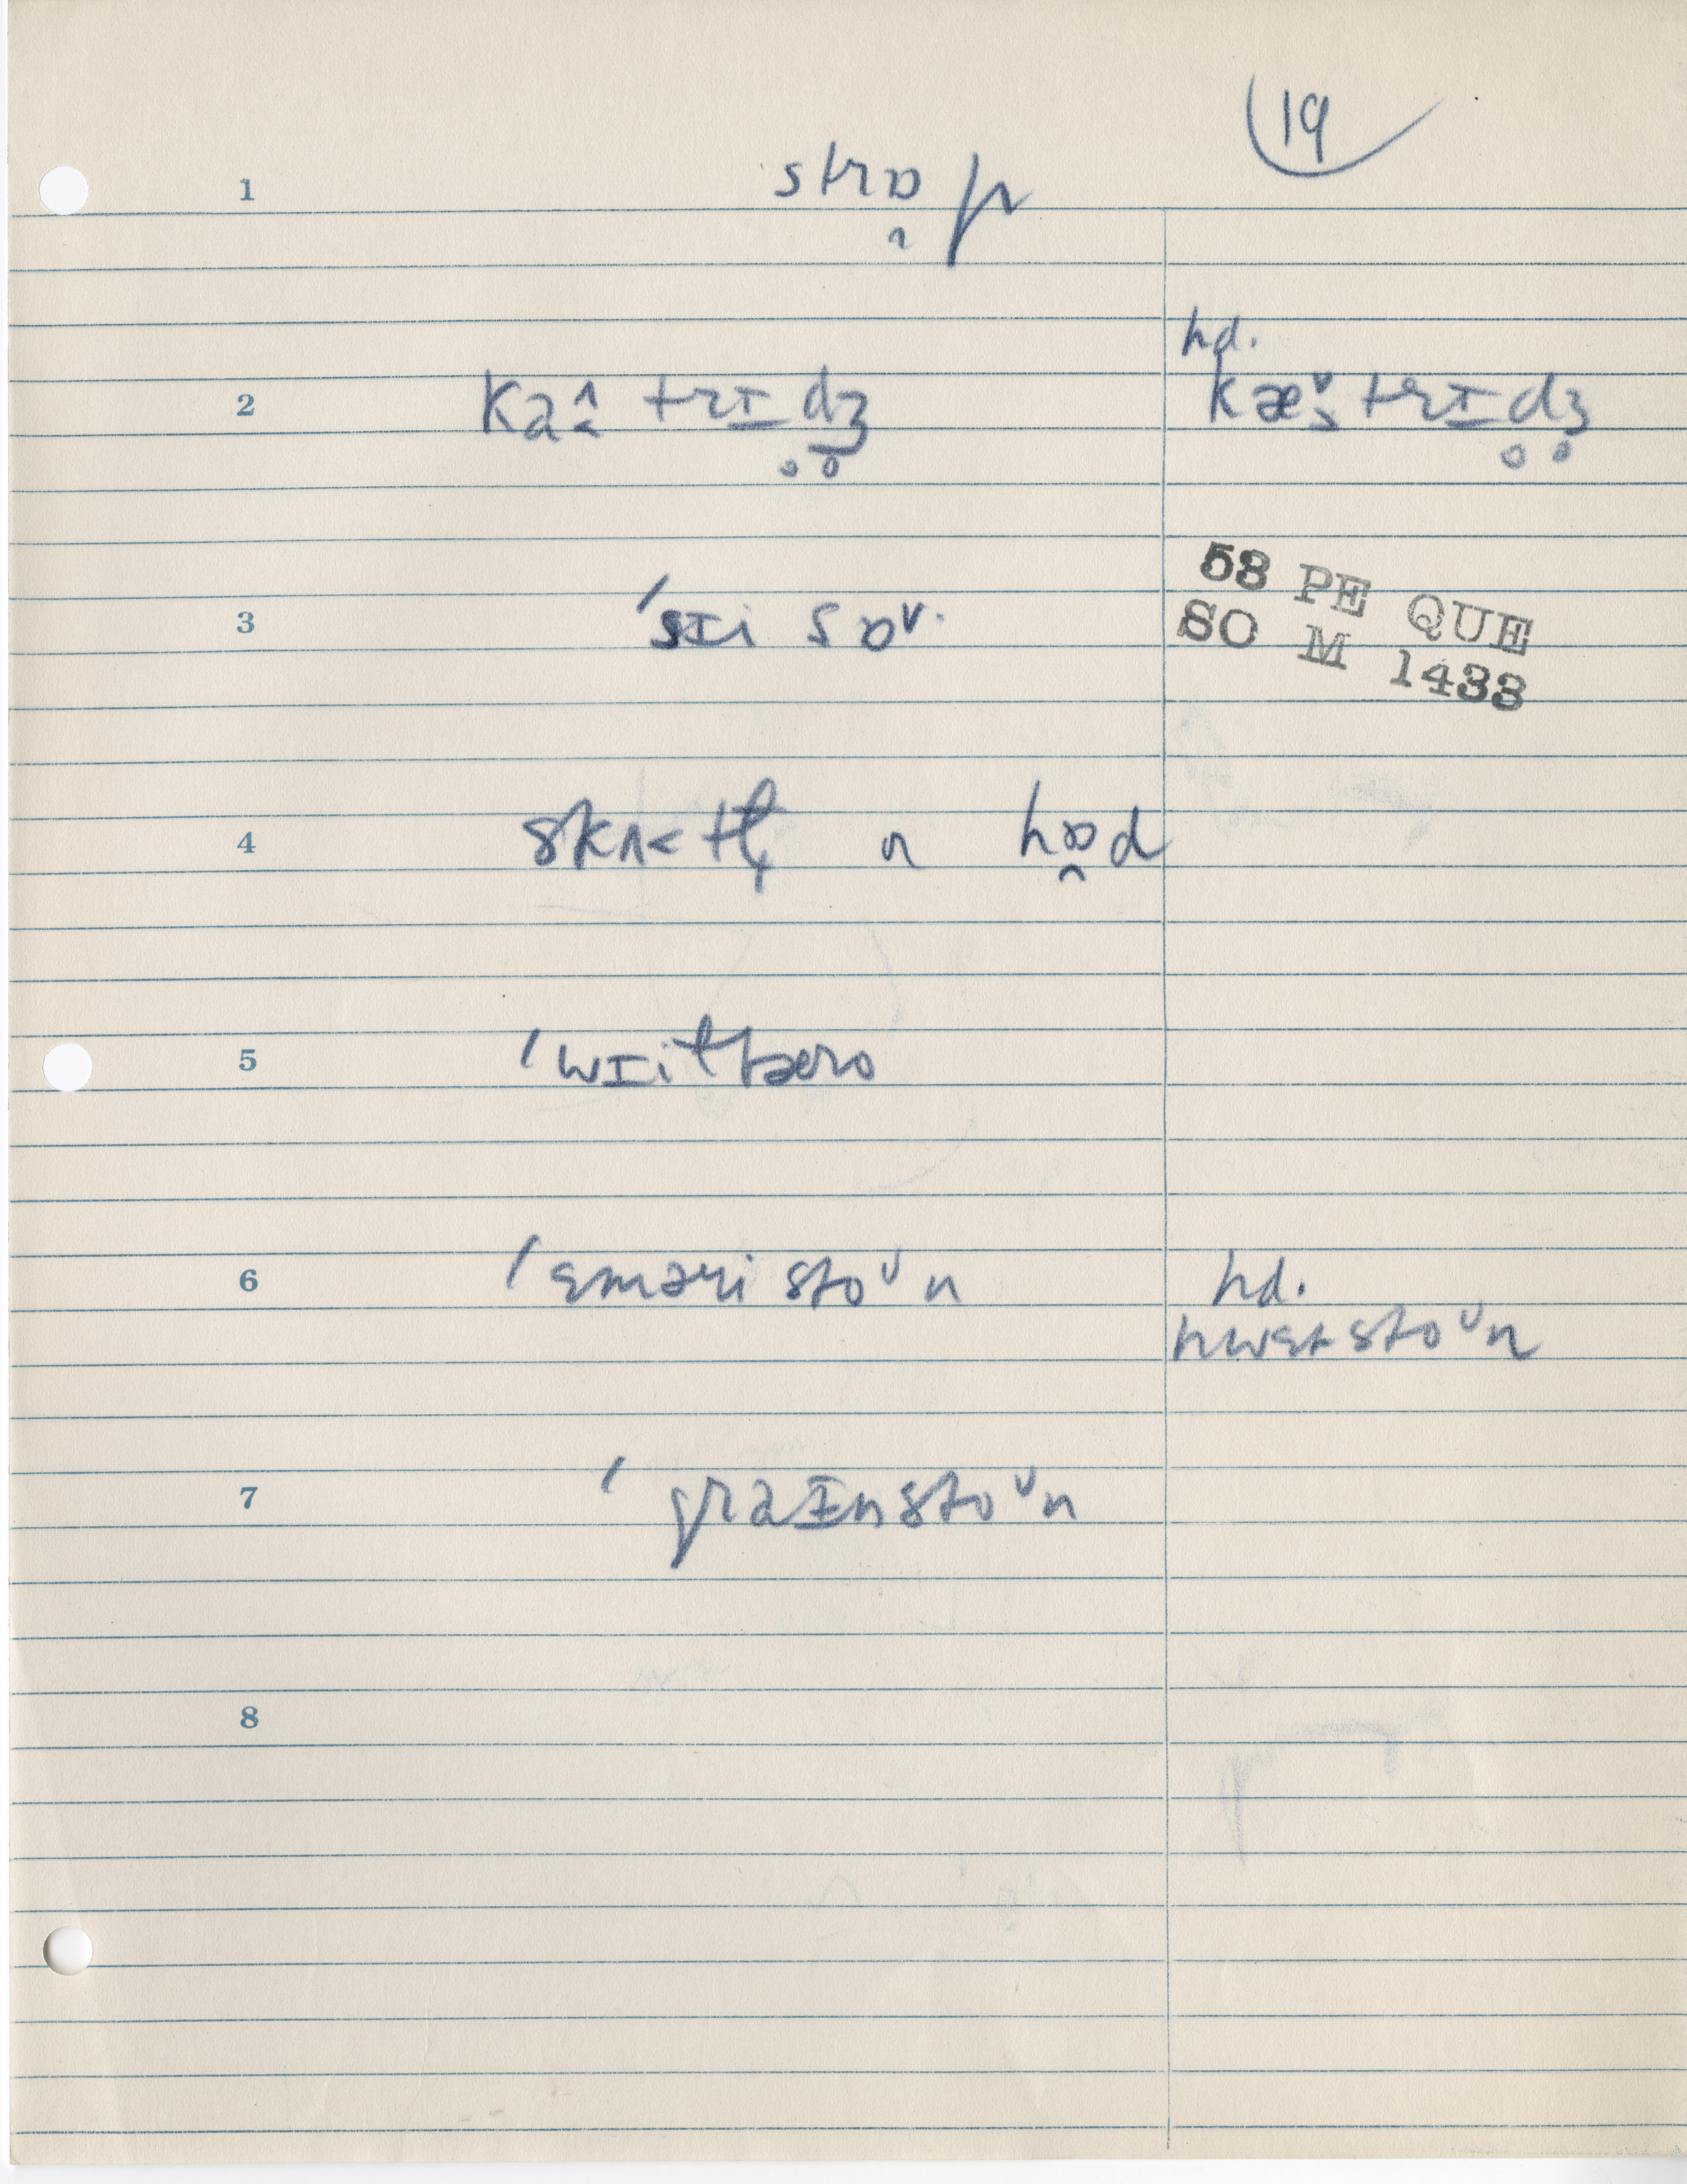 19
1 strɒ̯p
2 ka˄˂trɪ̠dʒ̥ hd. kæ˅˃trɪ̠dʒ̥
3 ˈsɪi sɒᵛ·
58 PE QUE
SO M 1433
4 skʌ˂tl̩ ə hɒ̯d
5 ˈwɪitbæro
6 ˈɛməristoᵘn hd.
hwɛtstoᵘn
7 ˈgraɪnstoᵘn
8